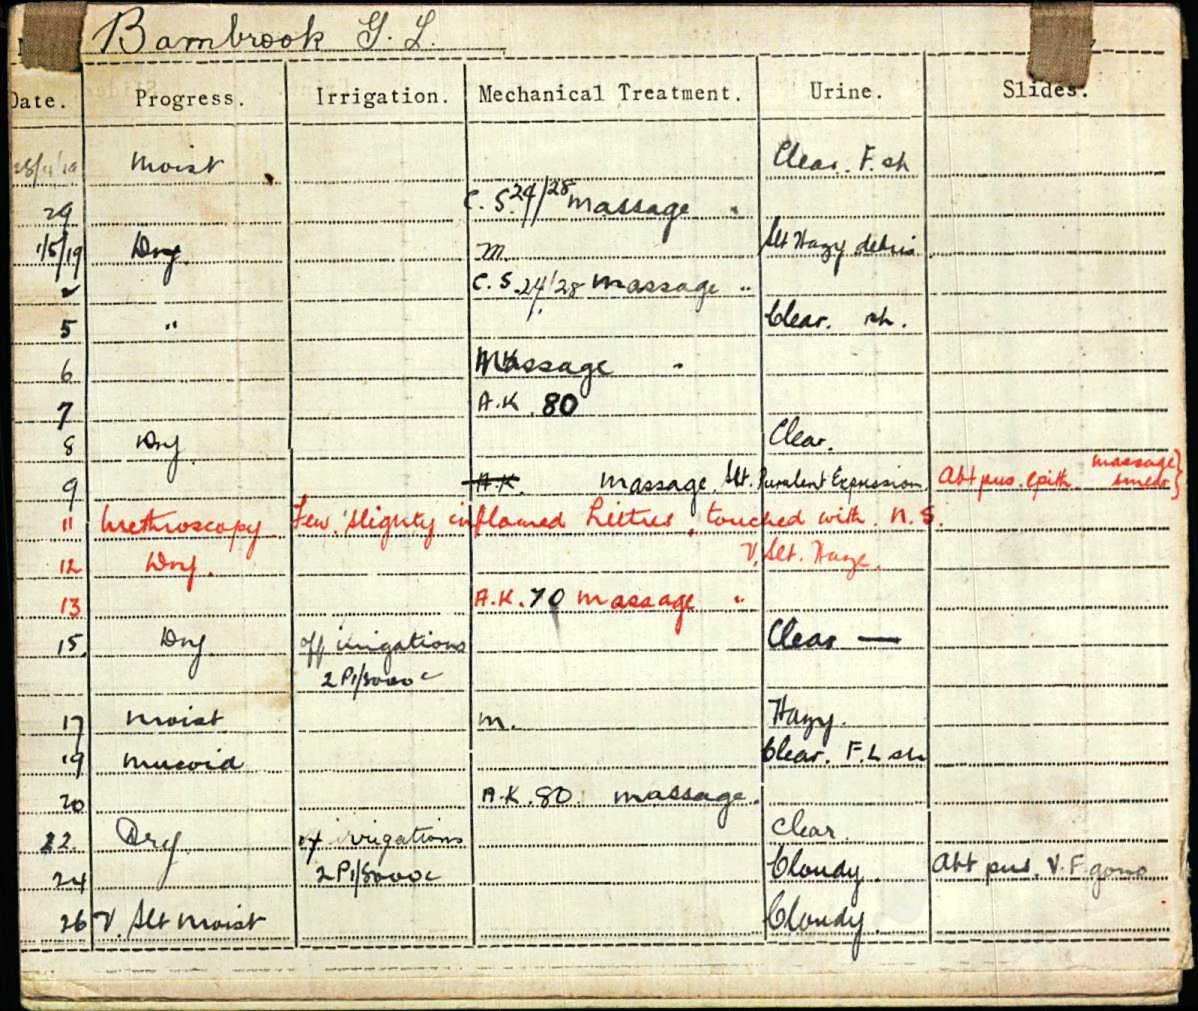 Bambrook G. L.
Date. Progress. Irrigation. Mechanical Treatment. Urine. Slides.
28/4/19 Moist Clear. F. sh
29 C. S. 24/28 massage "
1/5/19 Dry. M. Slt Hazy debris
2 C. S. 24/28 massage "
5 " Clear. sh.
6 Massage "
7 A.K. 80
8 Dry. Clear.
9 A.K. massage. Slt. Purulent Expression. Abt pus. epith. massage } smear
11 Urethroscopy Few slighty inflamed Littres, touched with. N. S.
12 Dry. V. Slt. Haze.
13 A.K. 70 massage "
15. Dry off irrigations Clear —
2 P1/8000 c
17 Moist M. Hazy.
19 Mucoid Clear. F.L sh
20 A.K. 80. massage.
22. Dry of irrigations Clear.
24 2 P1/8000 c Cloudy. Abt pus. V. F gono
26 V. Slt Moist Cloudy.